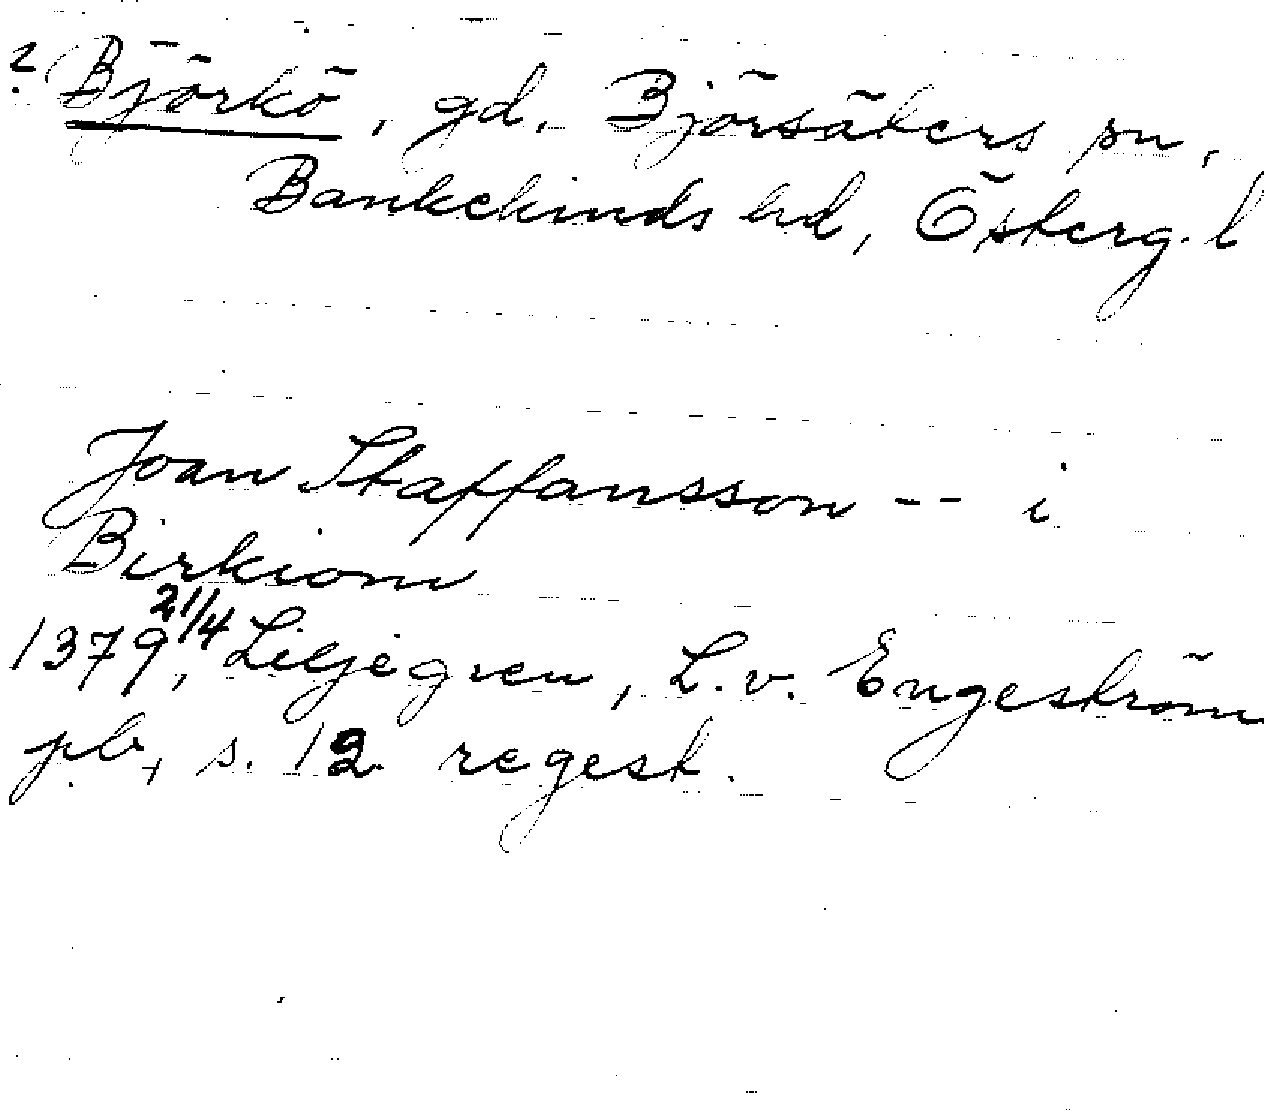 ? Björkö, gd, Björsäters sn,
Bankekinds hd, Österg. l
Joan Staffansson -- i
Birkiom
1379 21/4, Liljegren, L. v. Engeström
pb, s. 12 regest.